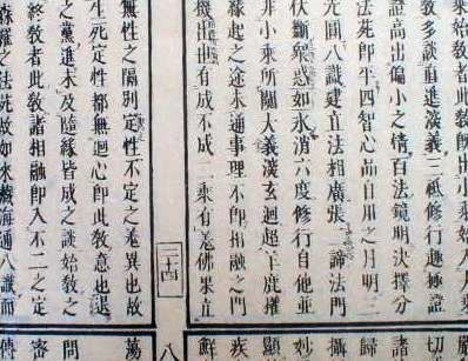 敎多談直進淡義三祇修行趣極證
證高出偏小之情百法鏡明決擇分
法苑即半四智心品自用之月明三
光圓八識建立法相廣張二諦法門
伏斷衆惑如氷消六度修行自他並
非小乘所關大義淡玄迥超
緣起之途未通事理不即相融之門
機出世有成不成二乘有差佛果直
二十四
無性之隔別定性不定之差異也故
生死定性都無迴心即此敎意也退
之黨進未及隨緣皆成之談始敎之
終敎者此敎諸相融即入不二之定
森羅之法 故如來藏海通八識而
切
諸
歸
攝
妙
顯
疾
鮮
八
萬
問
密
傳